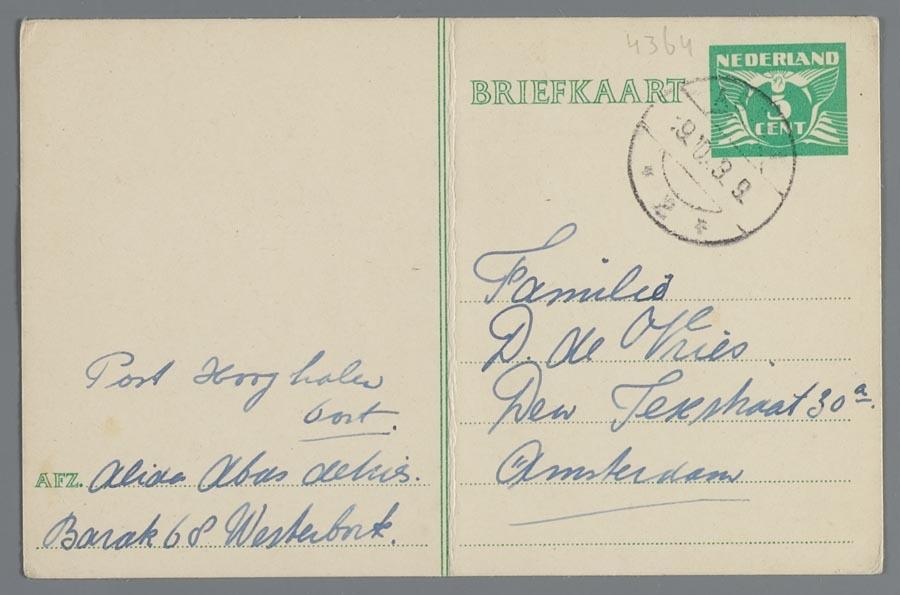 4364
NEDERLAND
5
CENT
BRIEFKAART
Familie
D. de Vries
Den Texstraat 30a.
Amsterdam
Post Hooghalen
Oost.
AFZ. Alida Abas de Vries.
Barak 68 Westerbork.